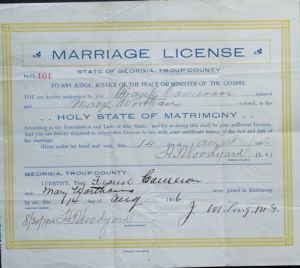 MARRIAGE LICENSE
STATE OF GEORGIA, TROUP COUNTY
No. 161
TO ANY JUDGE, JUSTICE OF THE PEACE OR MINISTER OF THE GOSPEL
YOU are hereby authorized to join Frank Cameron colored
and Mary Wortham colored, in the
HOLY STATE OF MATRIMONY
According to the Constitution and Laws of this State; and for so doing this shall be your sufficient License.
And you are hereby required to return this License to me, with your certificate hereon of the fact and date of
the marriage.
Given under my hand and seal, this 14 day of Aug 190
H T Woodyard (L. S.)
GEORGIA, TROUP COUNTY.
I CERTIFY, That Frank Cameron
and Mary Wortham were joined in Matrimony
by me this 14 day of Aug 1906
8/30/1906 H T Woodyard J. M. Long, M. G.